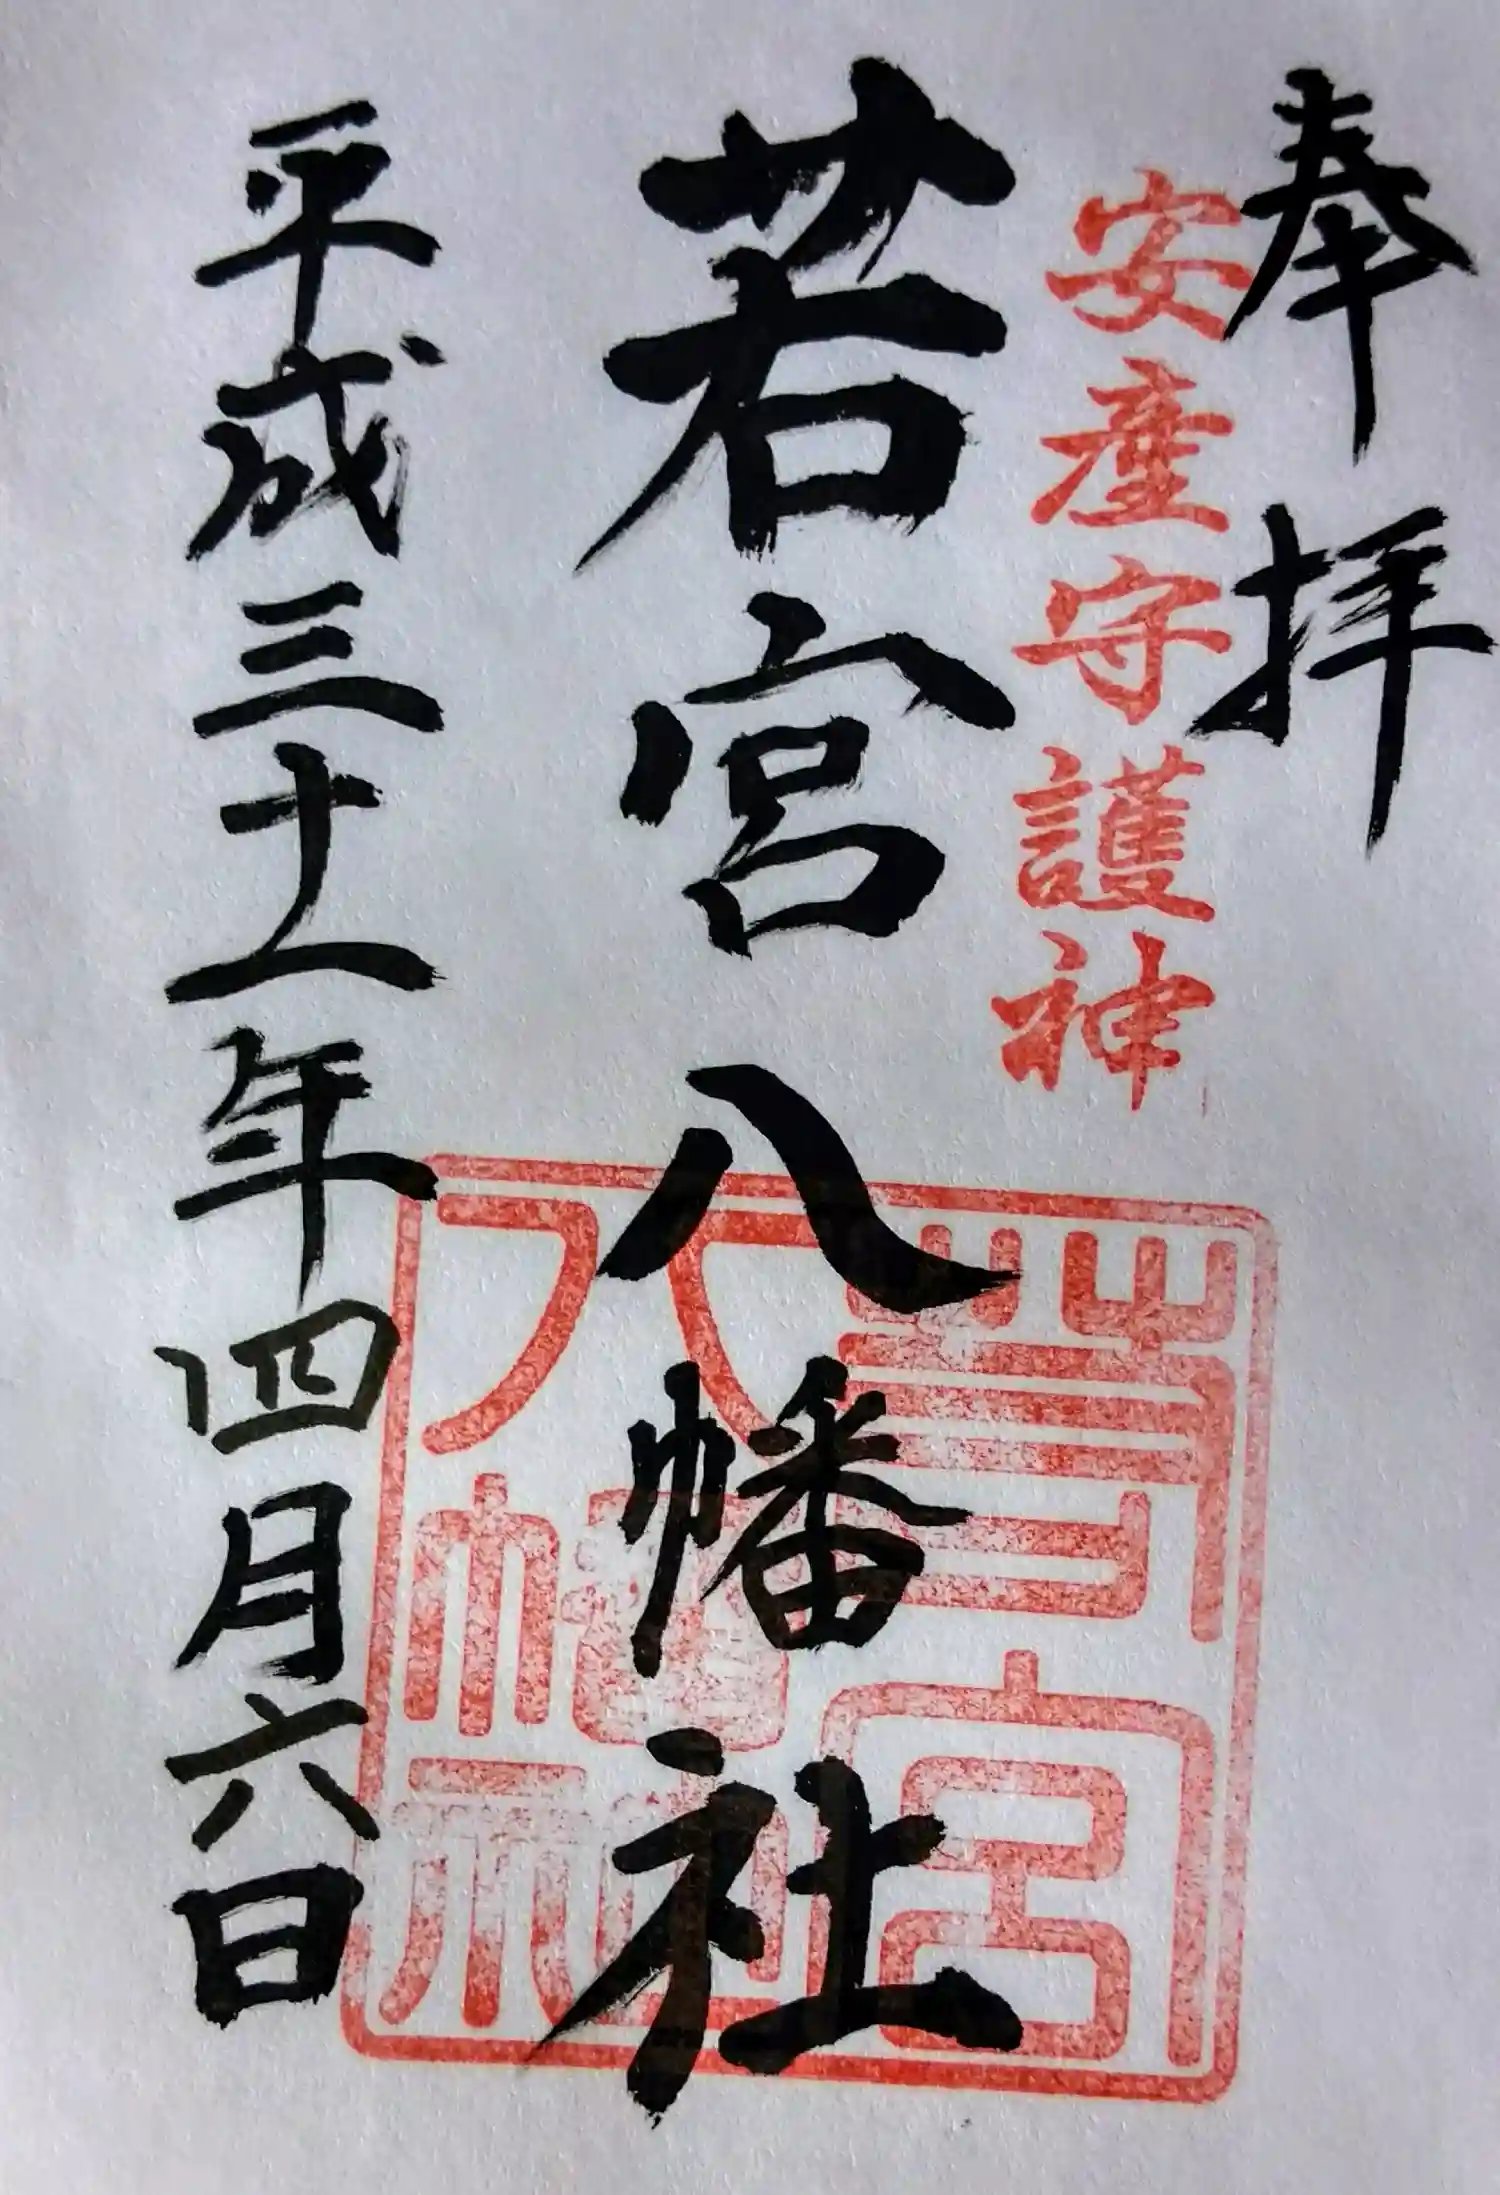 奉拝
安産守護神
若宮八幡社
若宮
八幡社
平成三十一年四月六日